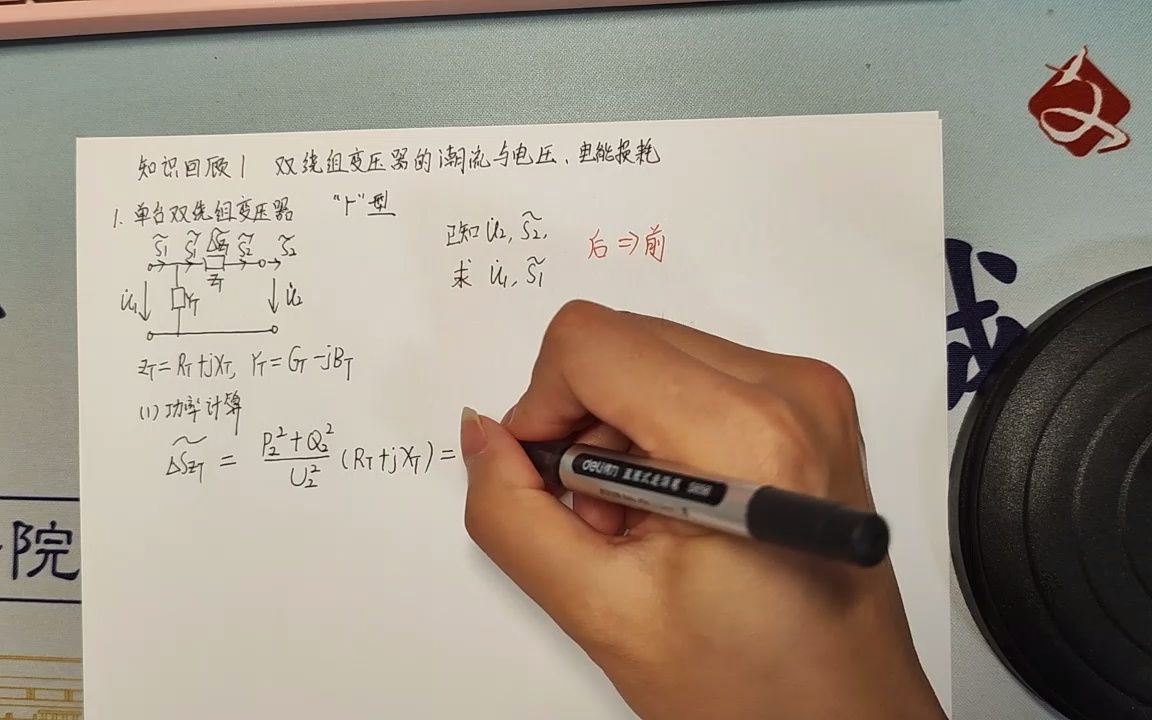 知识回顾1 双绕组变压器的潮流与电压、电能损耗
1. 单台双绕组变压器 "Γ"型
S̃1 S̃1' ΔS̃ZT S̃2' S̃2
ZT
U̇1 YT U̇2
已知 U̇2, S̃2,
求 U̇1, S̃1
后⇒前
ZT = RT+jXT, YT = GT-jBT
(1) 功率计算
ΔS̃ZT = (P2²+Q2²)/U2² (RT+jXT) =
deli得力
院